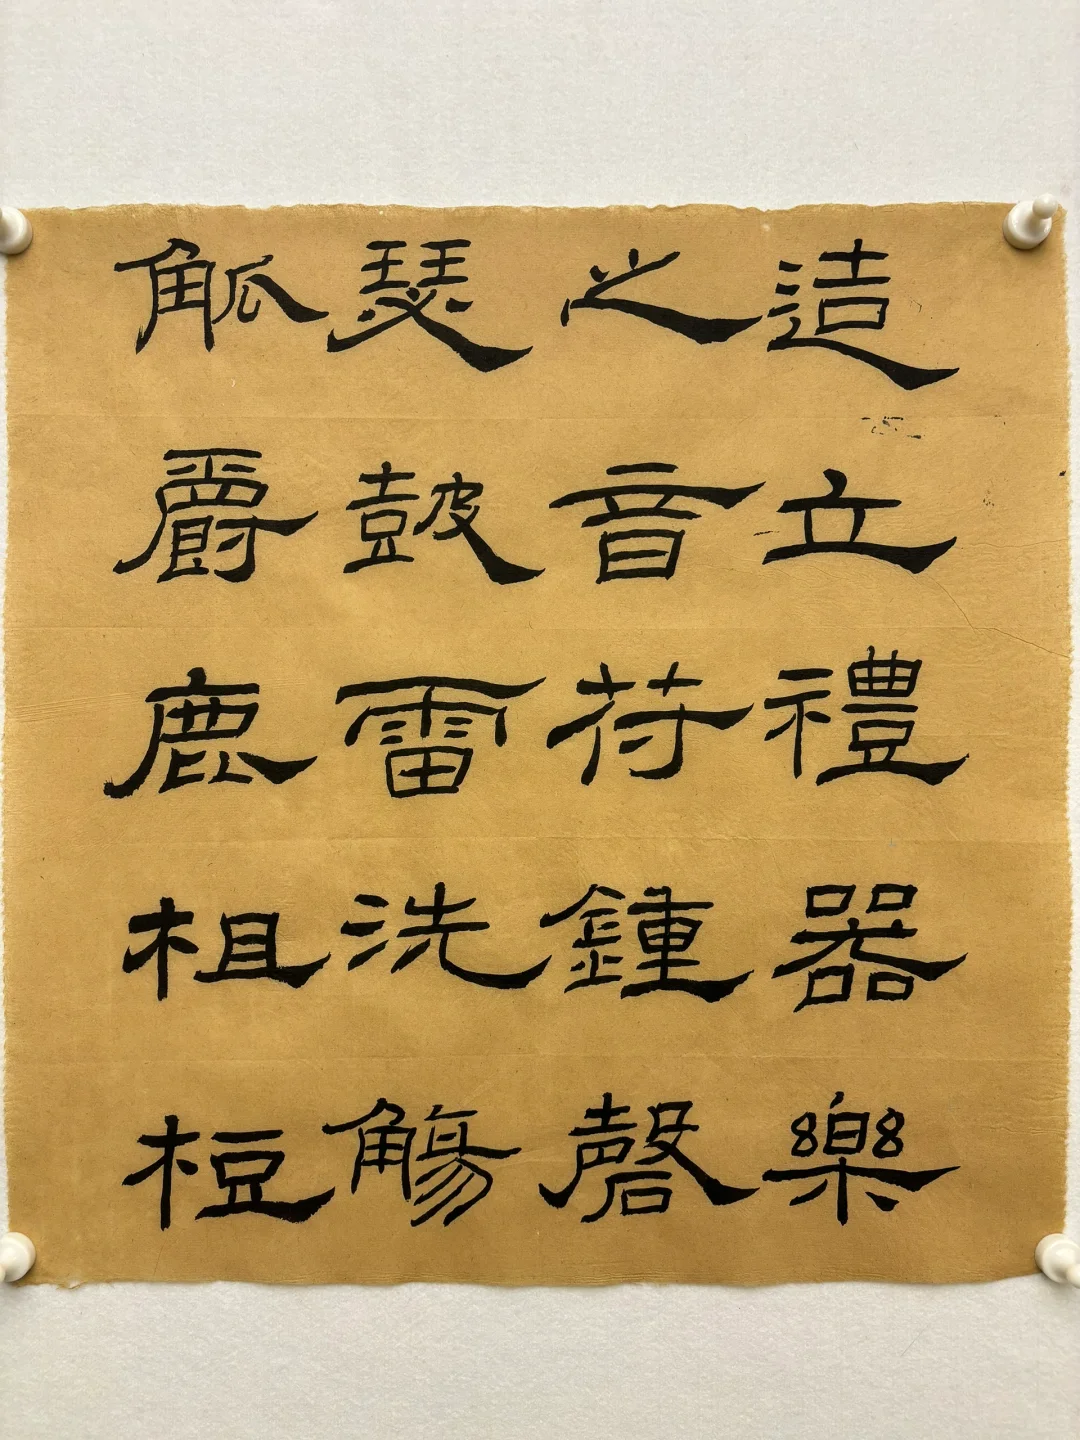 造立禮器樂
之音苻鍾磬
瑟鼓雷洗觴
觚爵鹿柤梪